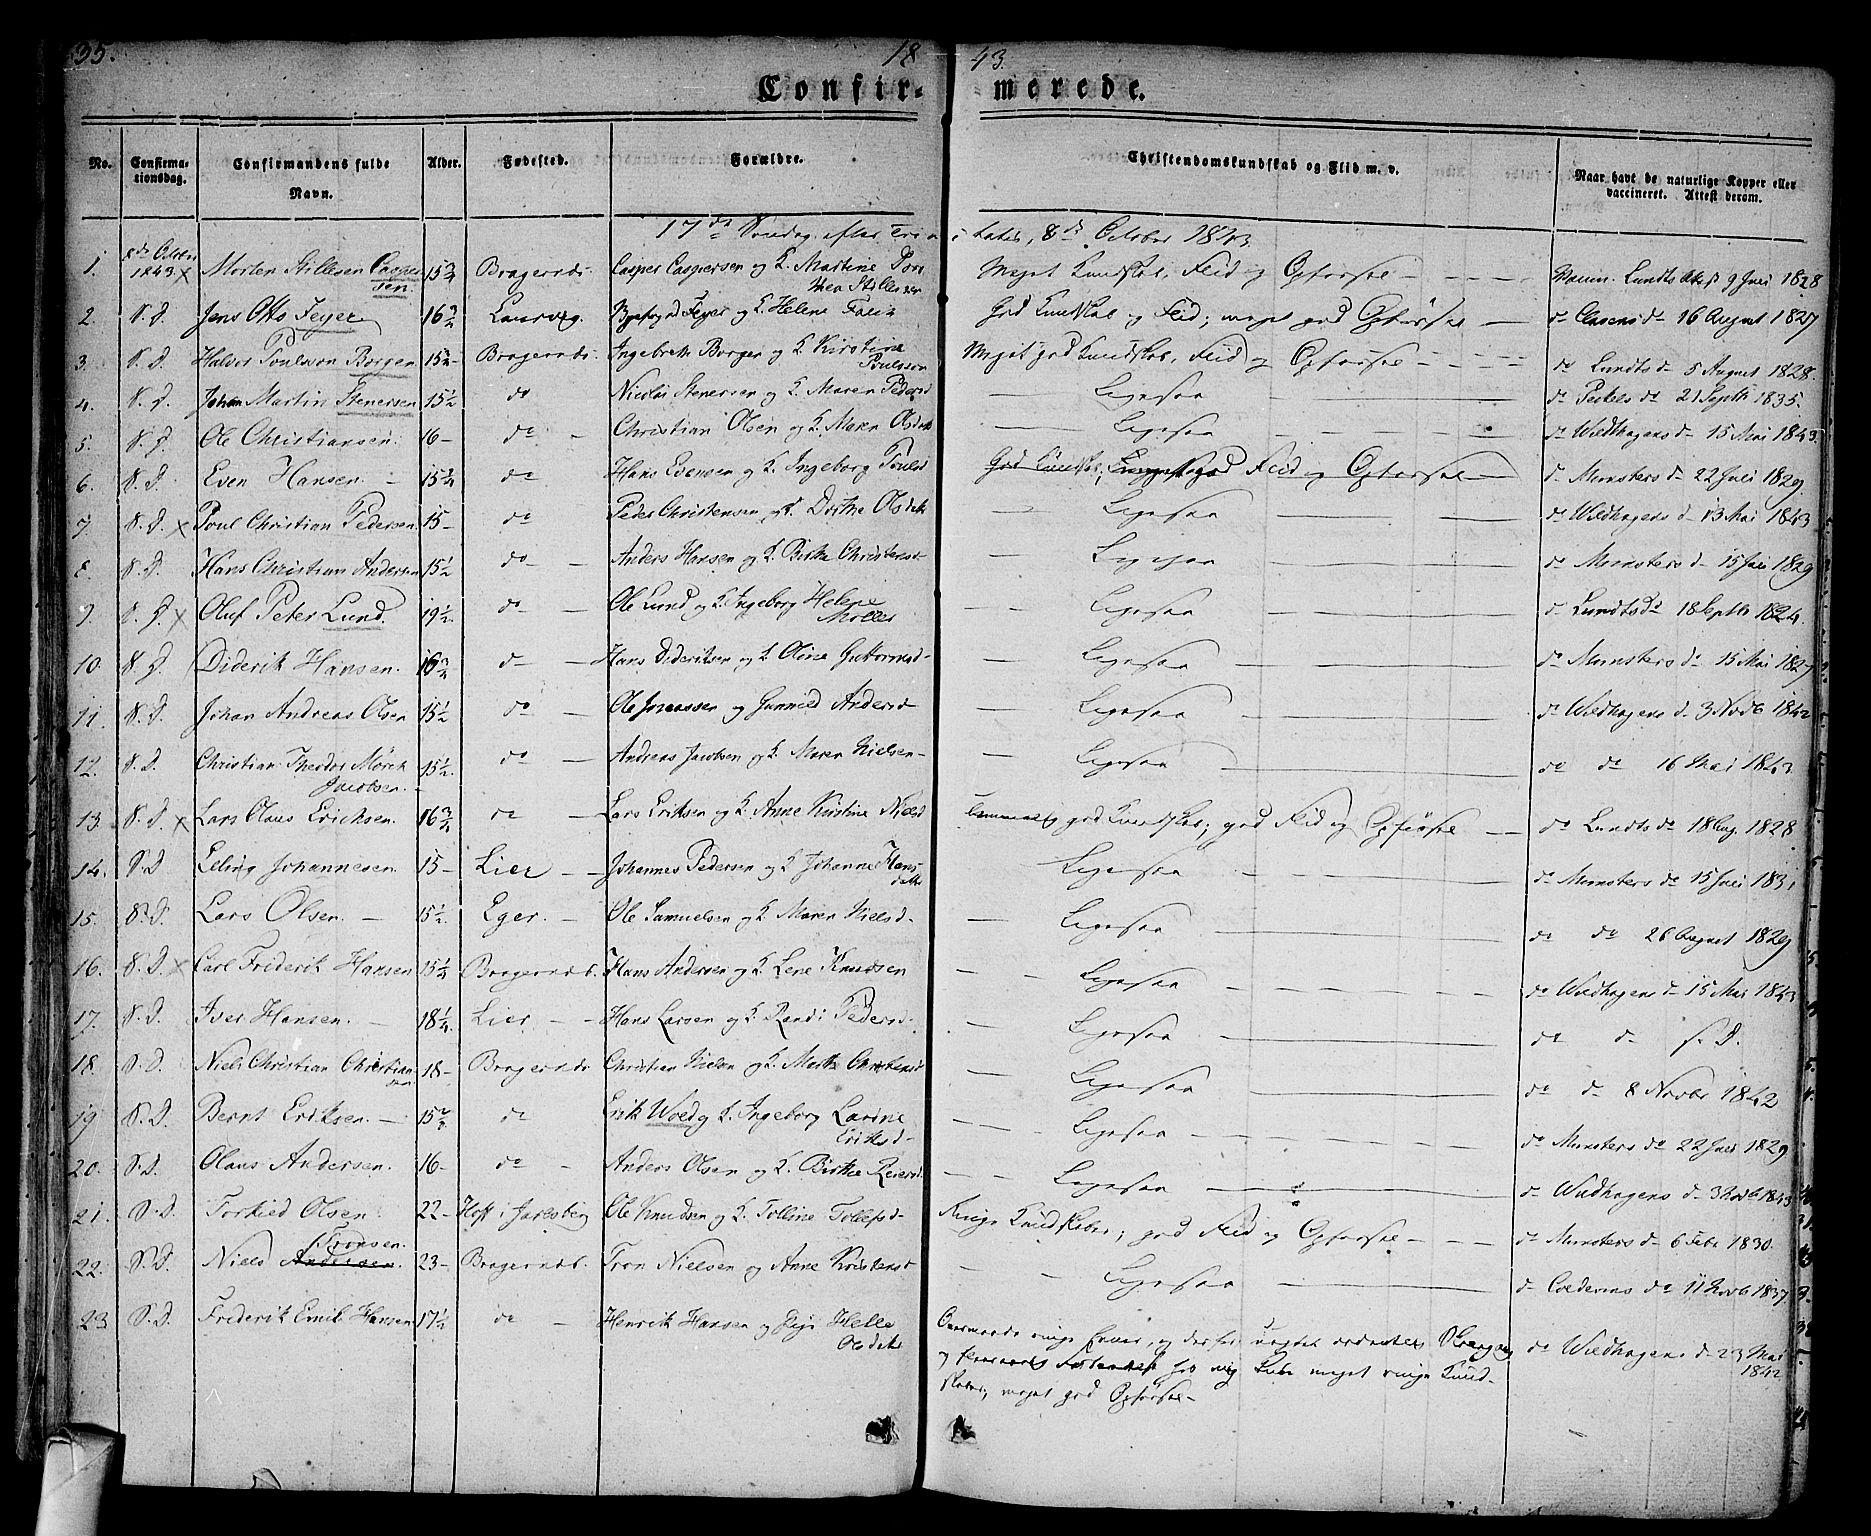 35. 18 43.
Confir- merede.
No. Confirma- Confirmandens fulde Alder. Fødested. Forældre. Christendomskundskab og Flid m. v. Naar havt de naturlige Kopper eller
tionsdag. Navn. vaccineret. Attest derom.
17de Søndag efter Trinitatis, 8de October 1843
1. 8de October 1843 x Morten Stillesen Caspersen 15 3/4 Bragernæs Casper Caspersen og K. Martine Dorthea Stillesen Meget Kundskab, Flid og Opførsel — Vaccin. Lundts Attest 9 Juli 1828
2. S. D. Jens Otto Fejer 16 3/4 Laurvig. Fejer og K. Helene God Kundskab og Flid; meget god Opførsel — do Clasens do 16 August 1827
3. S. D. Halvor Poulsson Borgen 15 Bragernæs. Ingebreth Borgen og K. Kirstine Poulsson Meget god Kundskab, Flid og Opførsel — do Lundts do 5 August 1828.
4. S. D. Johan Martin Stenersen 15 1/2 do Nicolai Stenersen og K. Maren Pedersd — Ligesaa — do do 21 Septb 1835.
5. S. D. Ole Christiansen. 16 - do — Christian Olsen og K. Maren Olsdatr — Ligesaa — do Wildhagens do 15 Mai 1843.
6. S. D. Even Hansen. - 15 3/4 do Hans Evensen og K. Ingeborg Poulsd God Kundskab, god Flid og Opførsel — do Munsters do 22 Juli 1829.
7. S. D. x Poul Christian Pedersen 15 - do Peder Christensen og K. Dorthe Olsdatr — Ligesaa — do Wildhagens do 13 Mai 1843
8. S. D. Hans Christian Andersen 15 1/2 do — Anders Hansen og K. Birthe Christensd — Ligesaa — do Munsters do 15 Juli 1829
9. S. D. x Oluf Peter Lund. 19 1/2. do — Ole Lund og K. Ingeborg Helene Møller — Ligesaa — do Lundts do 18 Septb 1824.
10. S. D. Diderik Hansen. 16 3/4 do — Hans Dideriksen og K. Oline Guttormsd — Ligesaa — do Munsters do 15 Mai 1827
11. S. D. Johan Andreas Olsen 15 1/2 do — Ole Jonassen og Gunnild Andersd — Ligesaa — do Wildhagens do 3 Novb 1842
12. S. D. Christian Theodor Mørch Jacobsen. 15 1/2. do — Andreas Jacobsen og K. Maren Nielsen — — Ligesaa — do do 16 Mai 1843.
13. S. D. x Lars Olaus Ericksen. 16 3/4 do — Lars Eriksen og K. Anne Kirstine Nielsd god Kundskab; god Flid og Opførsel — do Lundts do 18 Aug. 1828.
14. S. D. Elling Johannesen 15 - Lier — Johannes Pedersen og K. Johanne Hansdatr Ligesaa — do Munsters do 15 Juli 1831
15. S. D. Lars Olsen. — 15 1/2. Eger. - Ole Samuelsen og K. Maren Nielsd. — Ligesaa — do do 26 August 1829
16. S. D. x Carl Friderik Hansen 15 1/4 Bragernæs. Hans Andersen og K. Lene Knudsen — Ligesaa — do Wildhagens do 15 Mai 1843
17. S. D. Iver Hansen. — 18 1/4. Lier — Hans Larsen og K. Randi Pedersd. — Ligesaa — do do s. D.
18. S. D. Niels Christian Christiansen 18 - Bragernæs Christian Nielsen og K. Marthe Christensd — Ligesaa — do do 8 Novbr 1842
19 S. D. Bernt Eriksen. — 15 do Erik Wold og K. Ingeborg Lavine Eriksd - — Ligesaa — do Munsters do 22 Juli 1829
20. S. D. Olaus Andersen. 16 - do - Anders Olsen og K. Birthe Reiersd — Ligesaa — do Wildhagens do 3 Novb 1843
21. S. D. Torkild Olsen 22 - Hoff i Jarlsberg Ole Knudsen og K. Tolline Tollefsd - Ringe Kundskaber; god Flid og Opførsel — do Munsters do 6 Febr 1830.
22. S. D. Niels Andersen. Tronsen. 23 - Bragernæs. Tron Nielsen og Anne Kirstensd — Ligesaa — do do 11 Novb 1837
23 S. D. Friderik Emil Hansen 17 1/2 do — Henrik Hansen og Pige Helle Olsdatr ringe Evner, og derfor uagtet ordentlig
og hos mig kun meget ringe Kund- do Wildhagens do 23 Mai 1842
skaber, meget god Opførsel —